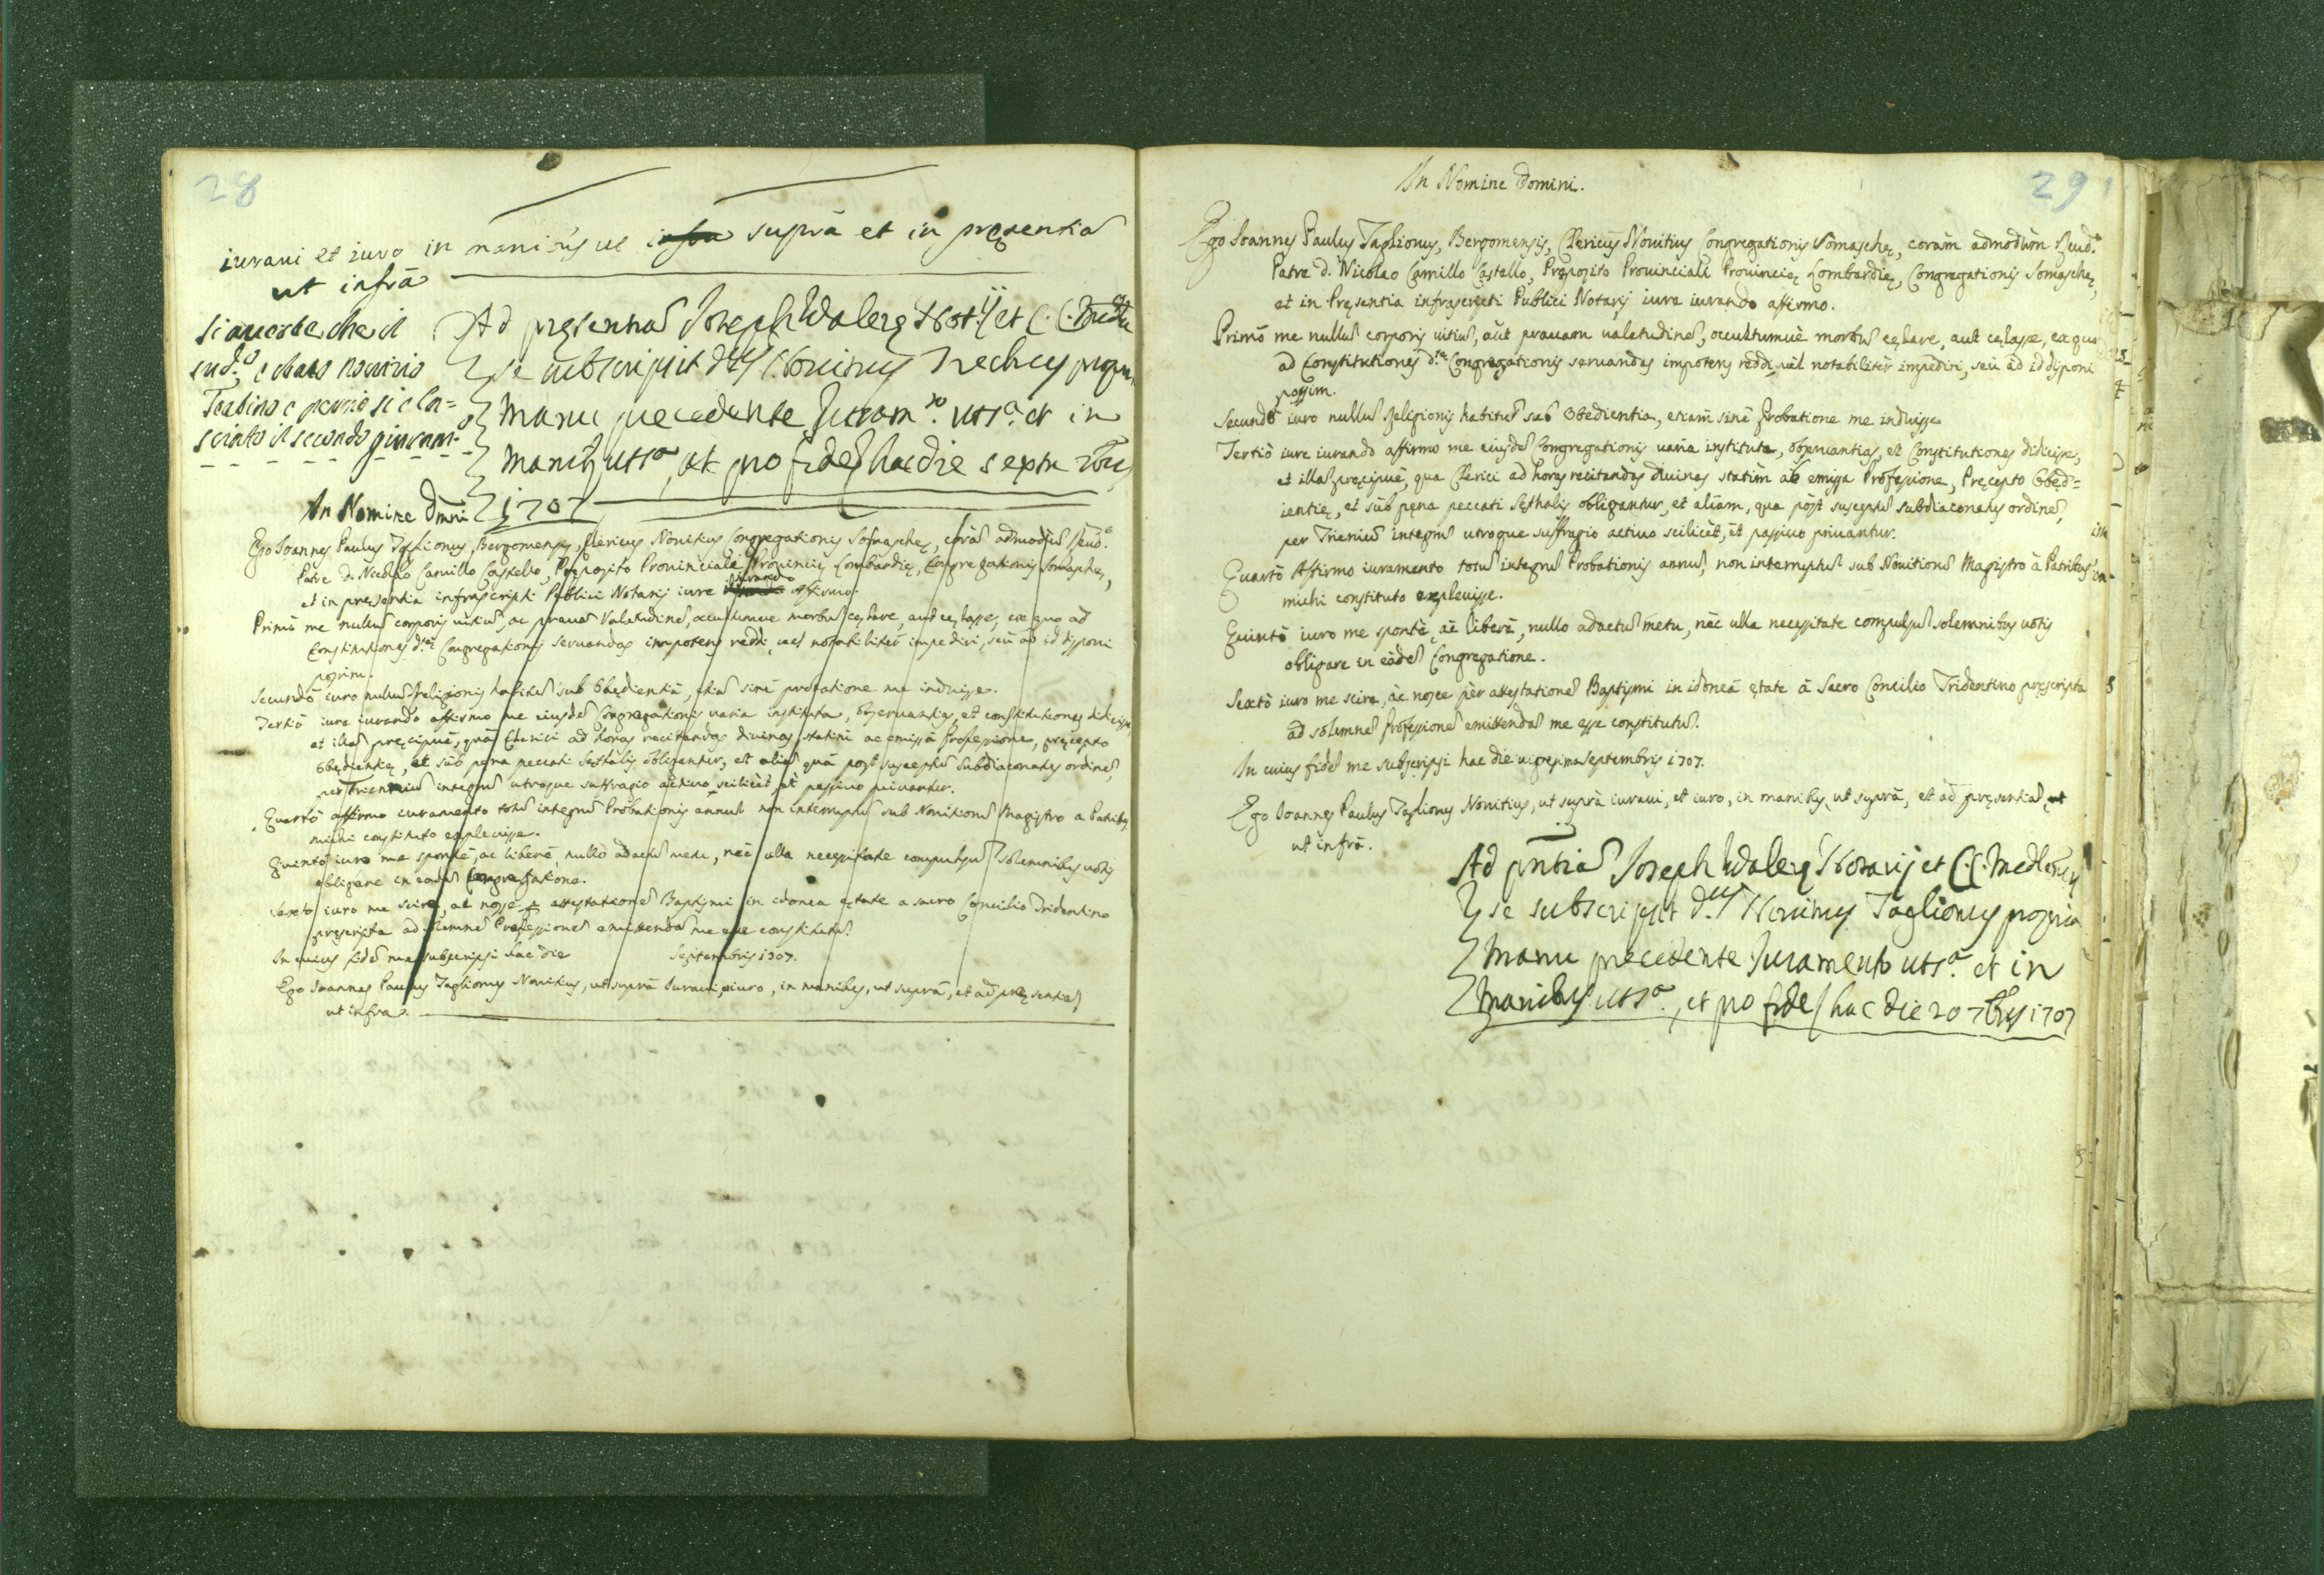 28
iurani et iuro in manibus ut infra suprà et in pręsentia
ut infrà
si auerte che il
sud.º è stato nouizio
Teatino e perciò si è la=
sciato il secondo giuram.º
Ad pręsentiā Joseph Walerę Not.ij et C.C. Med.
se subscripsit d.us Nouitius
manu precedente Juram.to ut s.a et in
manib, ut s.a, et pro fide hac die septu
1707
In Nomine Dmni
Ego Ioannes Paulus Taglionus, Bergomensis, Clericus Nouitius Congregationis Somaschę, corā admodū Reud.º
Patre D. Nicolao Camillo Castello, Pręposito Prouinciale Prouincię Lombardię, Congregationis Somaschę,
et in presentia infrascripti Publici Notarij iure iurando affirmo.
Primò me nullū corporis uitiū, ac prauā Valetudinē, occultumue morbū cęlare, aut cęlasse, ex quo ad
Constitutiones d.tę Congregationis seruandas impotens reddi, uel notabiliter impediri, seu ad id disponi
possim.
Secundò iuro nullū Religionis habitū sub Obędientiā, etiā sinè probatione me induisse.
Tertiò iure iurando affirmo me eiusdē Congregationis uaria instituta, obseruantias, et constitutiones didicisse,
et illā pręcipuè, quā Clerici ad horas recitandas diuinas statim ac emissā Professione, pręcepto
Obędientię, et sub pęna peccati Lęthalis obligantur, et aliā quā post susceptū Subdiaconatus ordinē,
per Trienniū integrū utroque suffragio actiuo scilicèt, et passiuo priuantur.
Quartò affirmo iuramento totū integrū Probationis annū non interruptū sub Nouitiorū Magistro a Patribus
michi constituto expleuisse.
Quintò iuro me spontè, ac liberè, nullo adactū metu, nèc ulla necessitate compulsū solemnibus uotis
obligare in eadē Congregatione.
Sexto iuro me scire, ac nosse p attestationē Baptismi in idonea ętate a sacro Concilio Tridentino
pręscripta ad solemnē Professionē emittendā me esse constitutū.
In cuius fidē me subscripsi hac die Septembris 1707.
Ego Ioannes Paulus Taglionus Nouitius, ut suprà iuraui, et iuro, in manibus, ut suprà, et ad pręsentiā,
ut infra.
29
In Nomine Domini.
Ego Ioannes Paulus Taglionus, Bergomensis, Clericus Nouitius Congregationis Somaschę, coràm admodùm Reud.º
Patre D. Nicolao Camillo Castello, Pręposito Prouinciali Prouincię Lombardię, Congregationis Somaschę,
et in Pręsentia infrascripti Publici Notarij iure iurando affirmo.
Primò me nullū corporis uitiū, aùt prauam ualetudinē, occultumuè morbū cęlare, aut cęlasse, ex quo
ad Constitutiones d.tę Congregationis seruandas impotens reddi, uèl notabilitèr impediri, seù ad id disponi
possim.
Secundò iuro nullū Religionis habitū sub Obedientia, etiam sinè Probatione me induisse
Tertiò iure iurando affirmo me eiusdē Congregationis uaria instituta, obseruantias, et Constitutiones didicisse,
et illā pręcipuè, qua Clerici ad horas recitandas diuinas statim ab emissa Professione, Pręcepto Obęd=
ientię, et sùb pęna peccati Lęthalis obligantur, et aliam, qua pòst susceptū Subdiaconatus ordinē,
per Trieniū integrū utroque suffragio actiuo scilicèt, et passiuo priuantur.
Quartò Affirmo iuramento totū integrū Probationis annū, non interruptū sub Nouitiorū Magistro à Patribus
michi constituto expleuisse.
Quintò iuro me spontè, àc liberè, nullo adactū metu, nèc ulla necessitate compulsū solemnibus uotis
obligare in eàdē Congregatione.
Sextò iuro me scire, àc nosse pèr attestationē Baptismi in idoneā ętate à Sacro Concilio Tridentino pręscripta
ad solemnē Professionē emittendā me esse constitutū.
In cuius fidē me subscripsi hac die uigesima Septembris 1707.
Ego Ioannes Paulus Taglionus Nouitius, ut suprà iuraui, et iuro, in manibus, ut suprà, et ad pręsentiā, ut
ut infrà.
Ad pntiā Joseph Walerę Notarij et C.C. Mediolnen
se subscripsit d.us Nouitius Taglionus propria
manu precedente Juramento ut s.a et in
manibus ut s.a, et pro fide hac die 20 7bris 1707